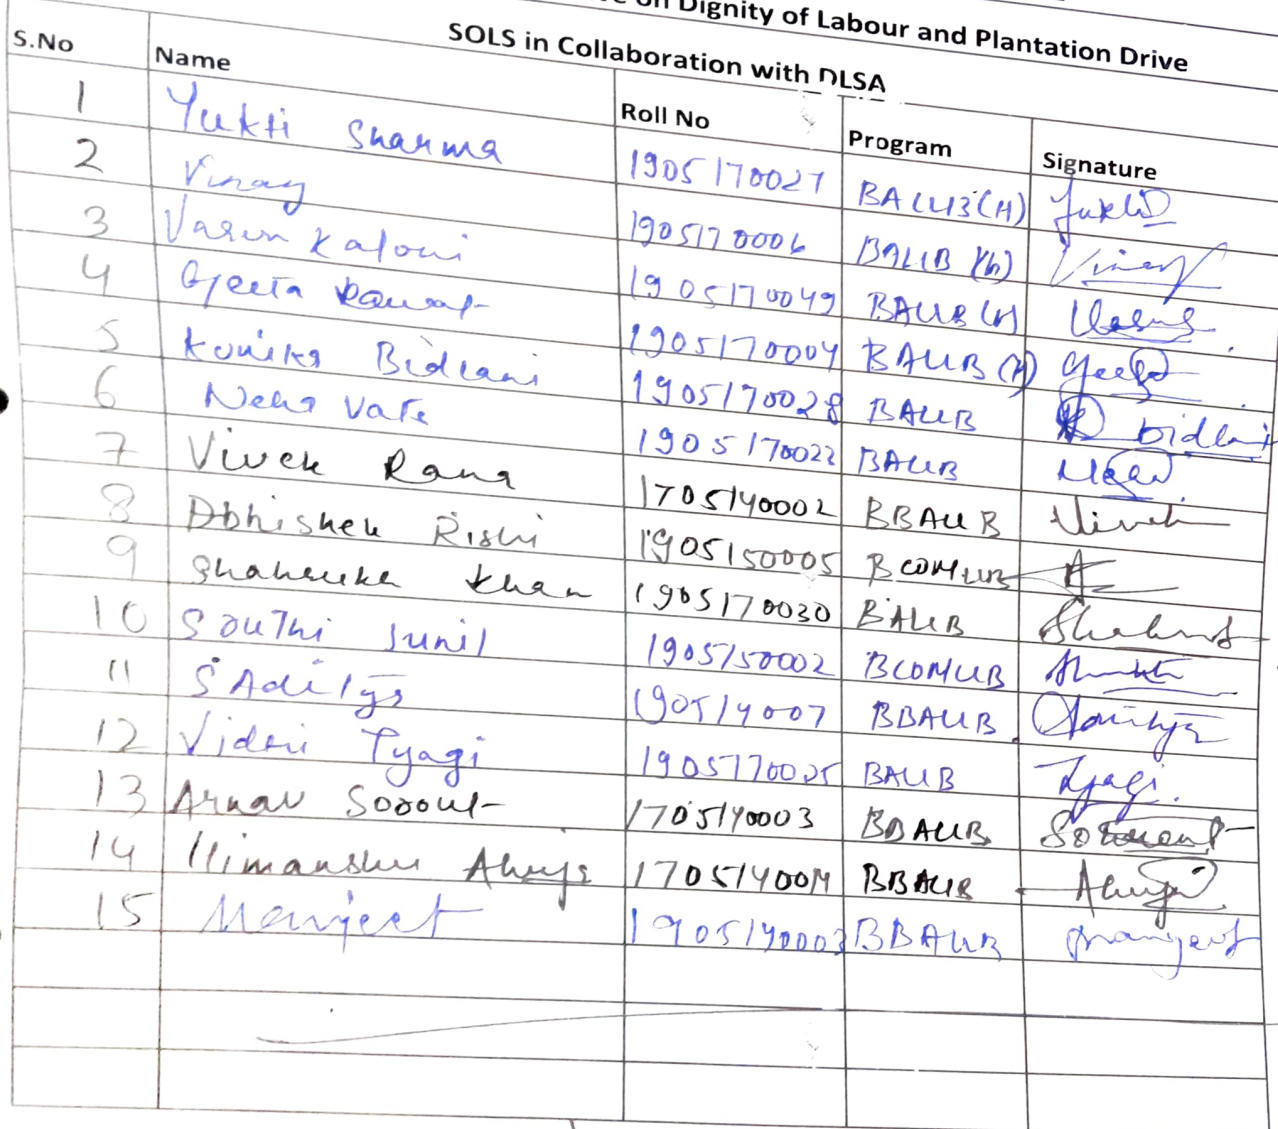 on Dignity of Labour and Plantation Drive
SOLS in Collaboration with DLSA
S.No Name Roll No Program Signature
1 Yukti Sharma 1905170027 BALLB(H) Yukti
2 Vinay 1905170006 BALLB (h) Vinay
3 Varun Kaloni 1905170049 BALLB (H)
4 Geeta Rawat 1905170004 BALLB (H) Geeta
5 Konika Bidlani 1905170028 BALLB bidlani
6 Neha Vats 1905170022 BALLB Neha
7 Vivek Rana 1705140002 BBALLB Vivek
8 Abhishek Rishi 1905150005 BCOMLLB A
9 Shahrukh Khan 1905170030 BALLB
10 Sunil 1905150002 BCOMLLB
11 190514007 BBALLB
12 Vidhi Tyagi 1905170025 BALLB Tyagi.
13 Arnav Sorout 1705140003 BBALLB Sorout
14 Himanshu Ahuja 170514001 BBALLB Ahuja
15 Manjeet 1905140003 BBALLB Manjeet